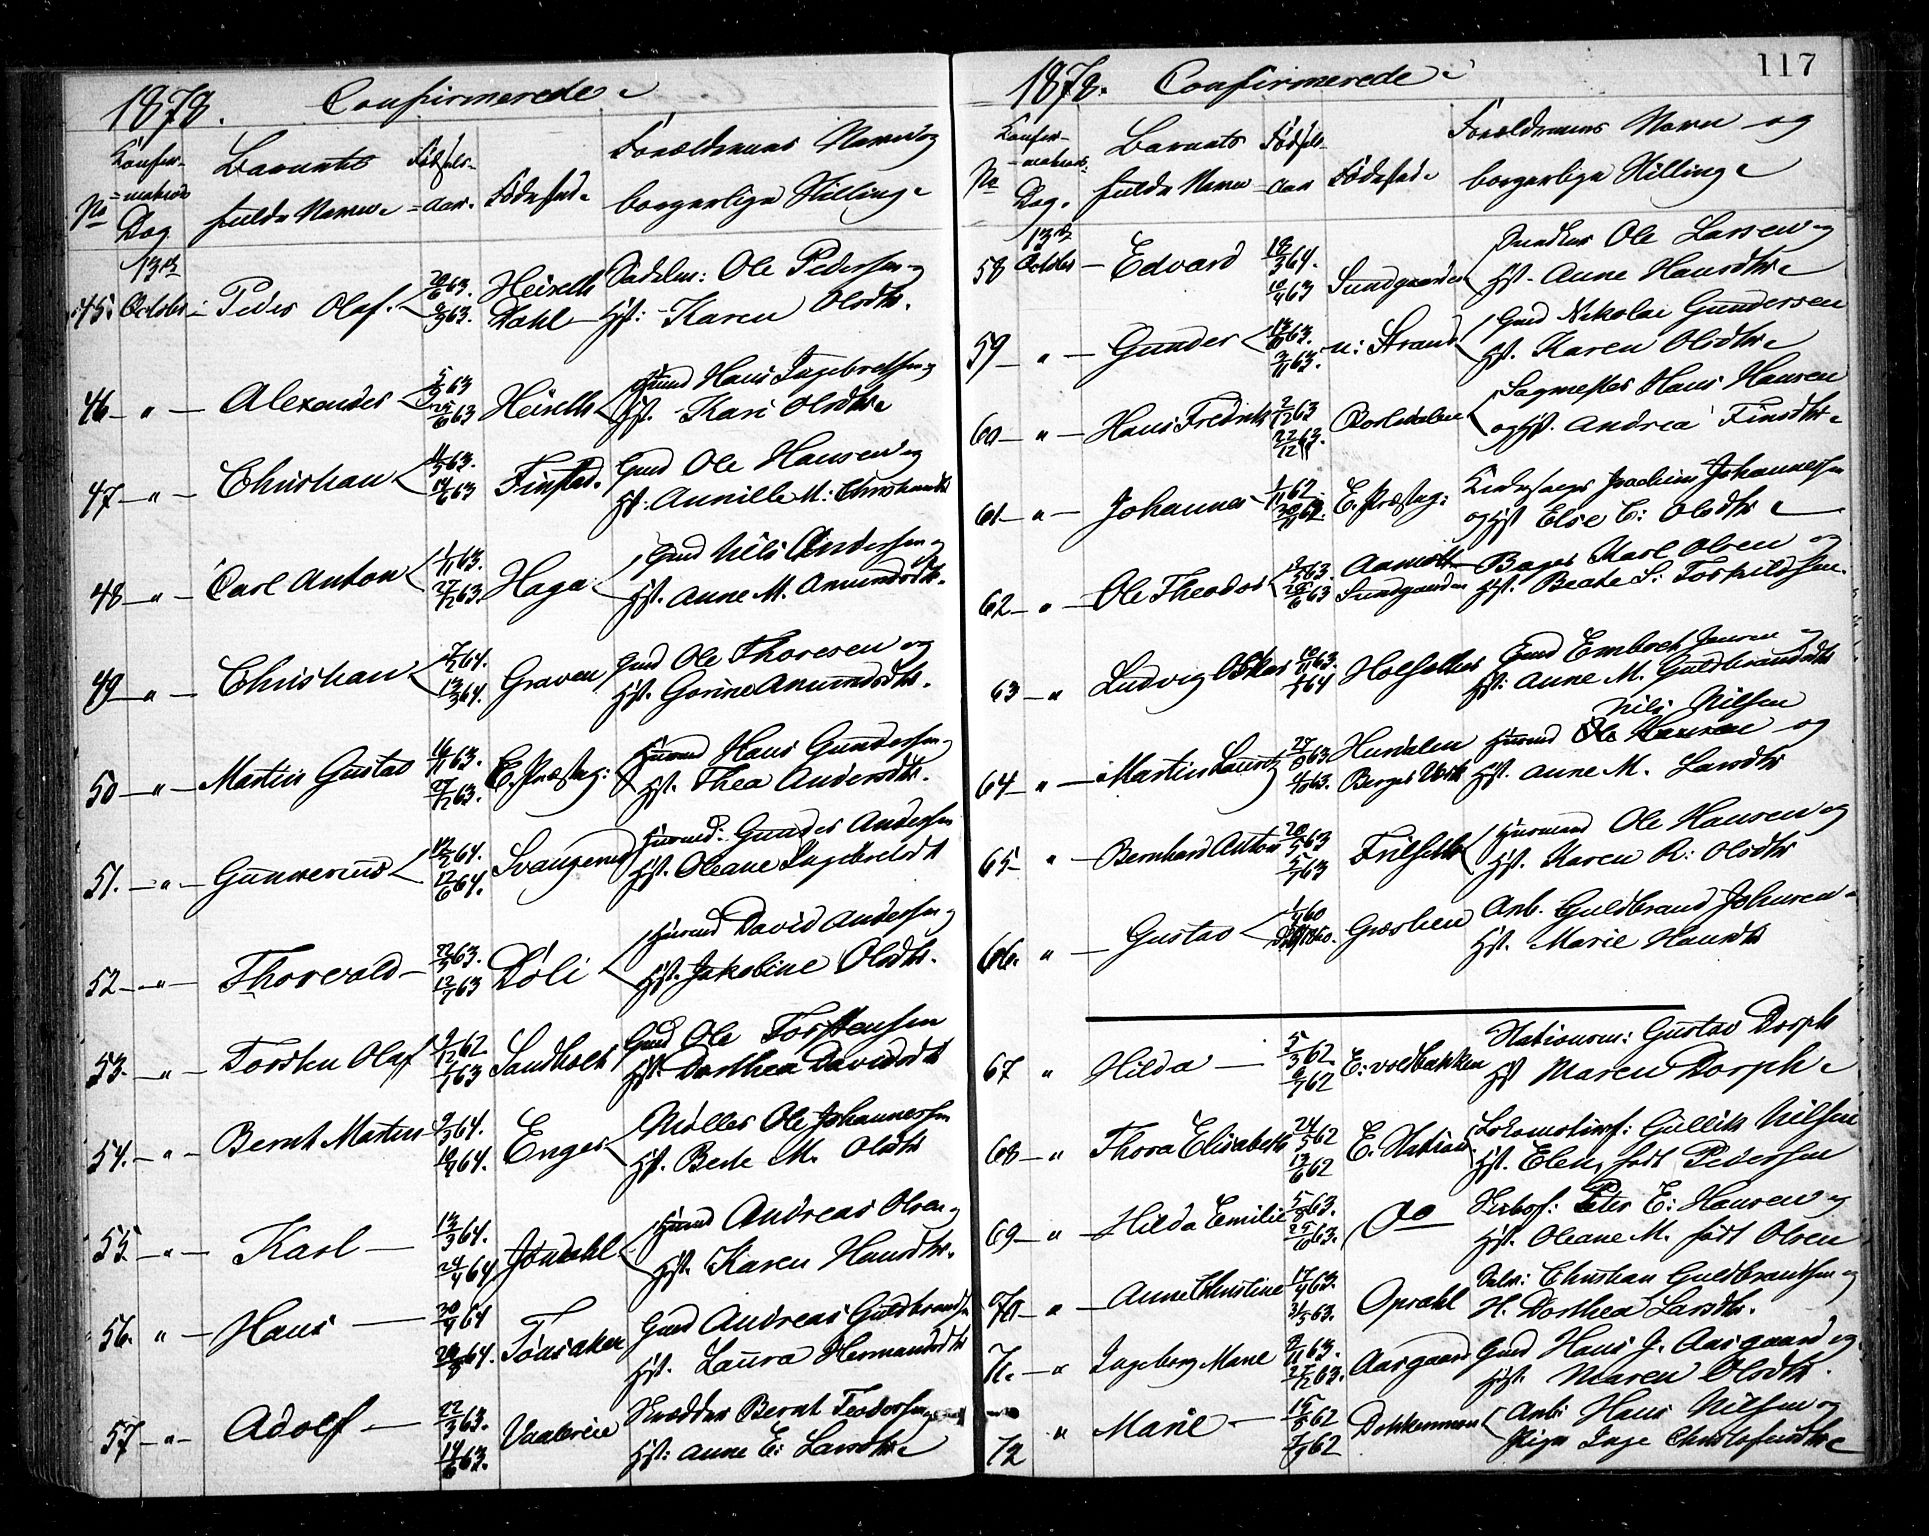 1878. Confirmerede
No Konfir-mations Dag Barnets fulde Navn Fødsels-aar. Fødested. Forældrenes Navn og borgerlige Stilling
13de
45. October Peder Olaf. 63. 63. Heiselh Dahl Ole Pedersen og Hst: Karen Olsdtr.
46 " Alexander 63 63 Heiselh Husmd Hans Ingebretsen og Hst. Kari Olsdtr
47 " Christian 63. 63 Finstad. Gmd Ole Hansen og Hst. Annille M: Christiansdtr
48 " Carl Anton 1/11 63. 27/12 63. Haga Gmd Nils Andersen og Hst. Anne M. Amundsdtr.
49 " Christian 64. 13/3 64. Graven Gmd Ole Thoresen og Hst. Gorine Amundsdtr.
50 " Martin Gustav 16/11 63. 27/12 63. E. Præsteg: Husmd Hans Gundersen Hst. Thea Andersdtr.
51. " Gunnerius 64. 12/6 64. Svangerud Husmd: Gunder Andersen Hst. Oleane Ingebretsdt
52 " Thorvald 22/5 63. 12/7 63 Døli Husmd David Andersen og Hst. Jakobine Olsdtr.
53. " Torsten Olaf 9/12 62 1/1 63 Sandholt Gmd Ole Torstensen Hst. Dorthea Davidsdt
54. " Bernt Martin 9/3 64. 10/4 64. Enger Møller Ole Johannessen Hst. Berte M. Olsdtr
55 " Karl 13/3 64. 24/4 64 Jøndahl Husmd Andreas Olsen og Hst. Karen Hansdtr.
56. " Hans 20/4 64 64. Tønsaker Gmd Andreas Guldbrandsen Hst. Laura Hermansdtr
57 " Adolf 22/3 63. 14/6 63. Vaalereie Skrædder Bernt Teodorsen Hst: Anne E: Larsdtr
117
1878. Confirmerede
No Konfir-mations Dag. Barnets fulde Navn Fødsels-aar Fødested. Forældrenes Navn og borgerlige Stilling
13de
58 October Edvard 64. 63 Sundgaarden Ole Larsen og Hst. Anne Hansdtr
59 " Gunder 63. 63. n: Strand Gmd Nikolai Gundersen Hst. Karen Olsdtr
60 " Hans Fredrik 2/12 63 22/12 63. Sagmester Hans Hansen og Hst. Andrea Finsdtr
61 " Johannes 1/11 62. 62. E. Præsteg: Joachim Johannessen og Hst Else C: Olsdtr
62 " Ole Theodor 63. 28/6 63 Aamodt Sundgaarden Bager Karl Olsen og Hst. Beate S: Torkildsen.
63 " Ludvig Oskar 10/11 63. 1/1 64 Holseller Gmd Embret Jensen og Hst: Anne M. Guldbrandsdtr
Nils Nilsen
64 " Martin Lauritz 27/8 63 4/10 63. Husdalen Bergs Husmd Ole Hansen og Hst. Anne M. Larsdtr
65 " Bernhard Anton 20/5 63 5/7 63 Frilset Husmand Ole Hansen og Hst. Karen R: Olsdtr
66. " Gustav 60 60. Græslien Arb. Guldbrand Johnsen Hst. Marie Hansdt
67 " Hilda 5/3 62. 62 E: voldbakken Stationsm: Gustav Dorph Hst Maren Dorph
68 " Thora Elisabeth 24/5 62 13/6 62 E. Station Lokomotivf: Gullik Nilsen Hst. Elen, født Pedersen
69 " Hilda Emilie 5/8 63. 25/10 63. Do Peter E: Hansen og Hst. Oleane M. født Olsen
70 " Anne Christine 17/4 63. 31/5 63. Opsahl Selv: Christian Guldbrandsen og H. Dorthea Larsdtr.
71. " Ingeborg Marie 9/11 63. 27/12 63. Aasgaard Gmd Hans J. Aasgaard og Hst. Maren Olsdtr.
72 " Marie 15/5 62 7/9 62 Dokkenmoen Arb: Hans Nilsen og Pige Inge Christofersdtr